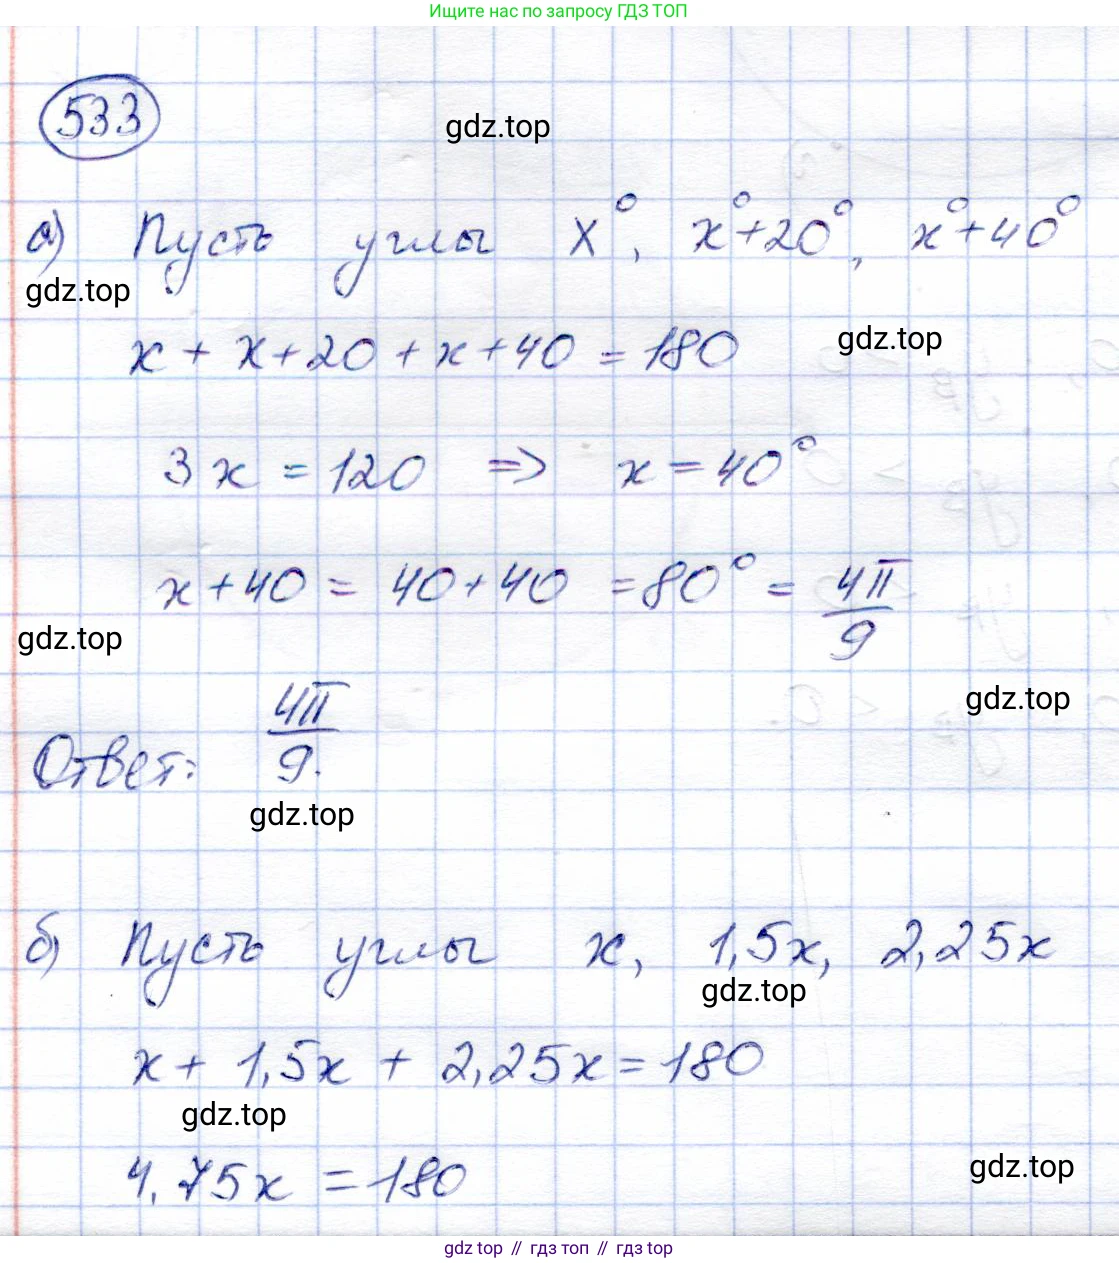 Ищите нас по запросу ГДЗ ТОП
533
gdz.top
а) Пусть углы x°, x°+20°, x°+40°
gdz.top
x + x+20 + x+40 = 180
gdz.top
3x = 120 => x = 40°
x+40 = 40+40 = 80° = 4π/9
gdz.top
gdz.top
Ответ: 4π/9.
gdz.top
б) Пусть углы x, 1,5x, 2,25x
gdz.top
x + 1,5x + 2,25x = 180
gdz.top
4,75x = 180
gdz.top
gdz top // гдз топ // gdz top